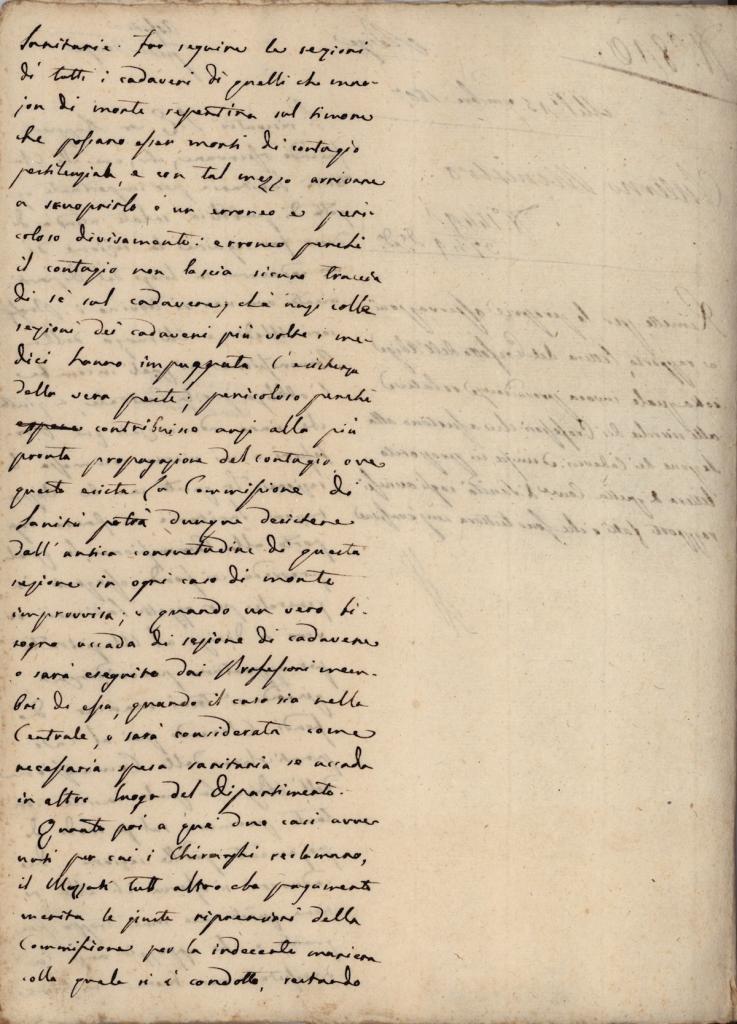 Sanitarie. Far seguire le sezioni
di tutti i cadaveri di quelli che muo-
jon di morte repentina sul timore
che possano esser morti di contagio
pestilenziale, e con tal mezzo arrivare
a scuoprirlo è un erroneo e peri-
coloso divisamento: erroneo perchè
il contagio non lascia sicura traccia
di sè sul cadavere; chè anzi colle
sezioni dei cadaveri più volte i me-
dici hanno impugnata l'esistenza
della vera peste; pericoloso perchè
contribuisce anzi alla più
pronta propagazione del contagio, ove
questo esista. La Commissione di
Sanità potrà dunque desistere
dall'antica consuetudine di questa
sezione in ogni caso di morte
improvvisa; e quando un vero bi-
sogno accada di sezione di cadavere
o sarà eseguito dai Professori mem-
bri di essa, quando il caso sia nella
Centrale, o sarà considerata come
necessaria spesa sanitaria se accada
in altro luogo del Dipartimento.
Quanto poi a que' due casi avve-
nuti per cui i Chirurghi reclamano,
il tutt'altro che pagamento
merita le giuste riprensioni della
Commissione per la indecente maniera
colla quale si è condotto, restando